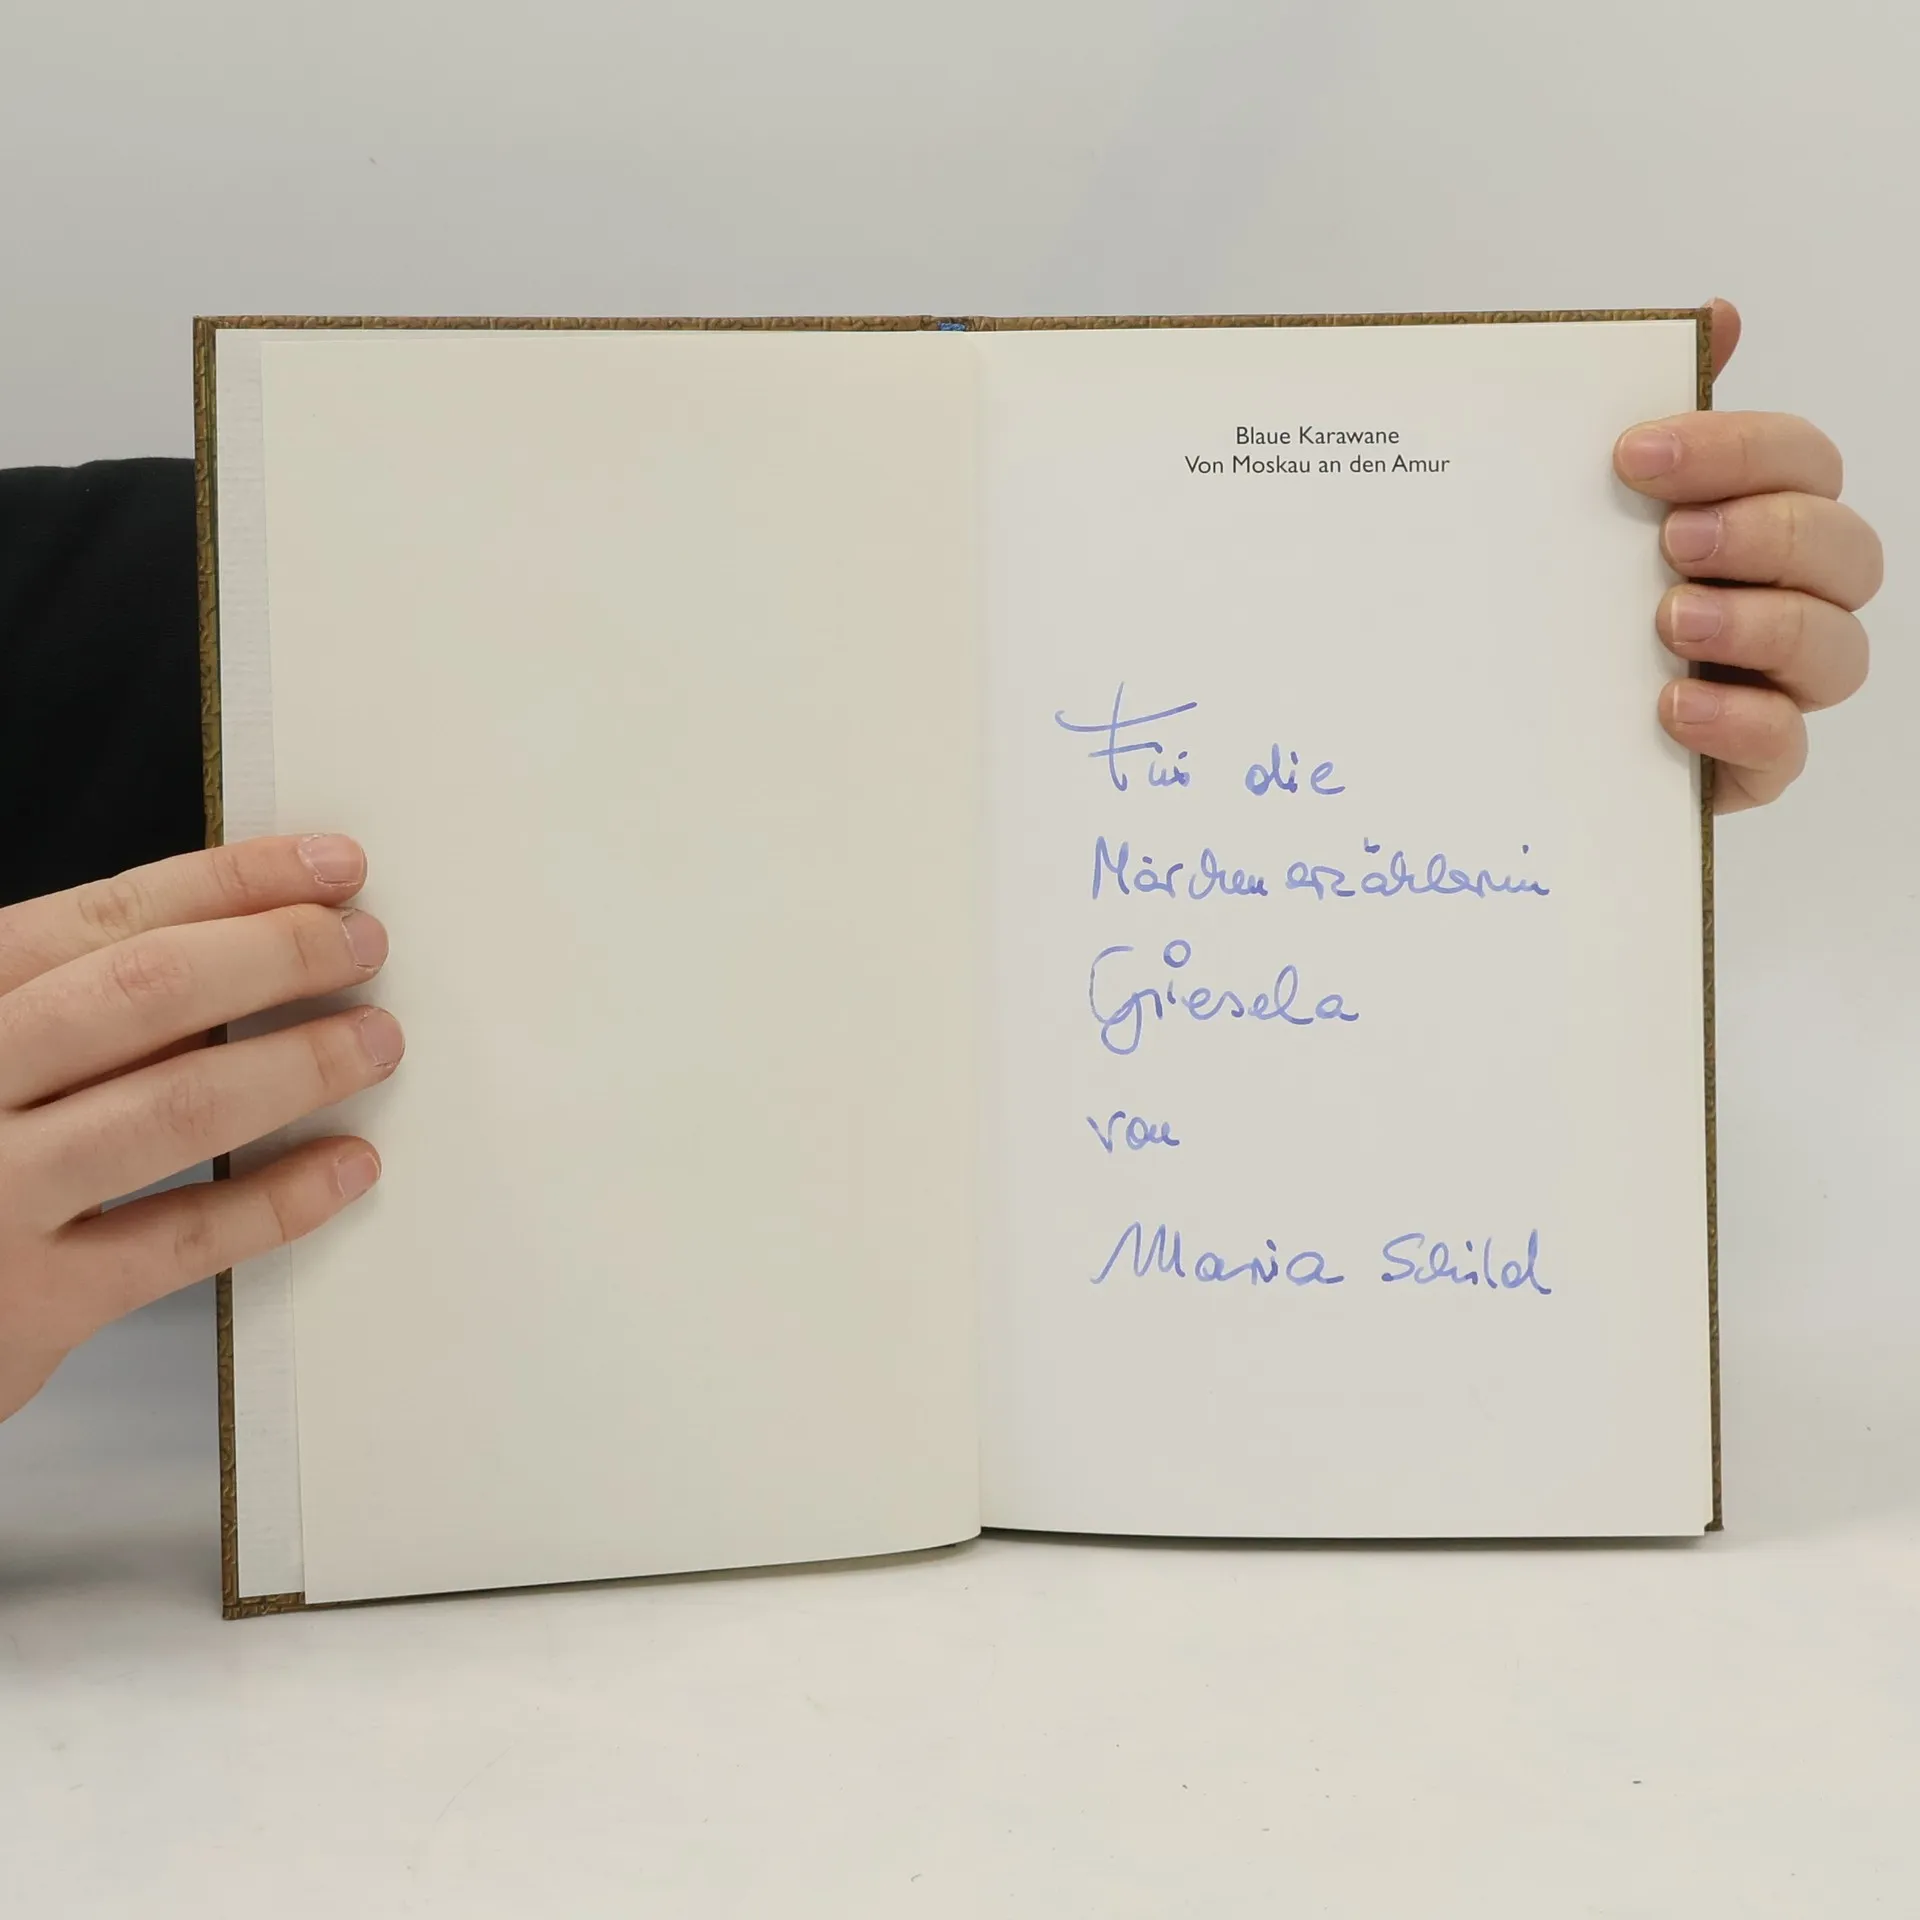 Blaue Karawane
Von Moskau an den Amur
Für die
Märchenerzählerin
Giesela
von
Maria Schild